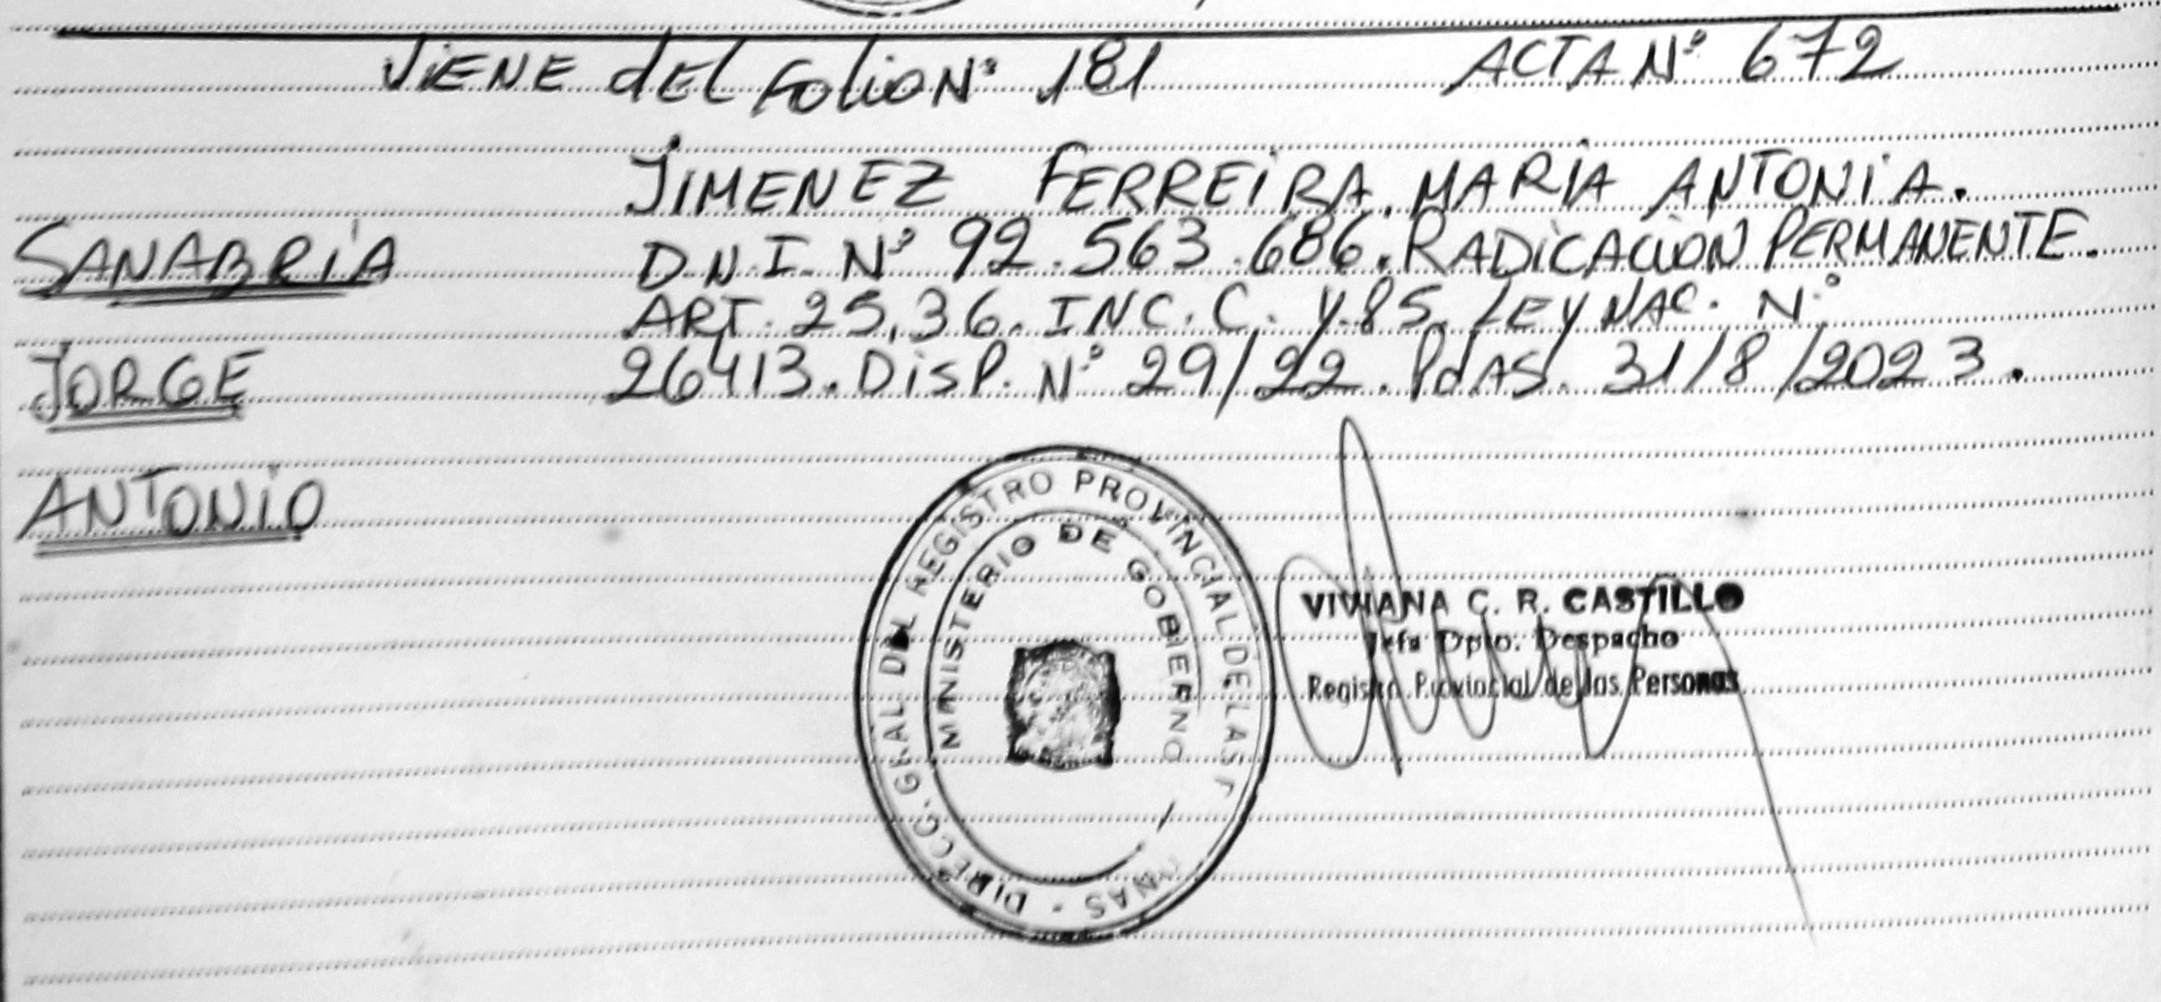 VIENE dEL FOLIO Nº 181 ACTA Nº 672
JIMENEZ FERREIRA. MARIA ANTONIA.
SANABRIA D.N.I. Nº 92.563.686. RADICACION PERMANENTE.
ART. 25,36. INC. C. Y.85. LEY NAC. Nº
JORGE 26413. DISP. Nº 29/22. PdAS. 31/8/2023.
ANTONIO
DIRECC. GRAL DEL REGISTRO PROVINCIAL DE LAS
MINISTERIO DE GOBIERNO
VIVIANA C. R. CASTILLO
Jefa Dpto. Despacho
Registro Provincial de las Personas